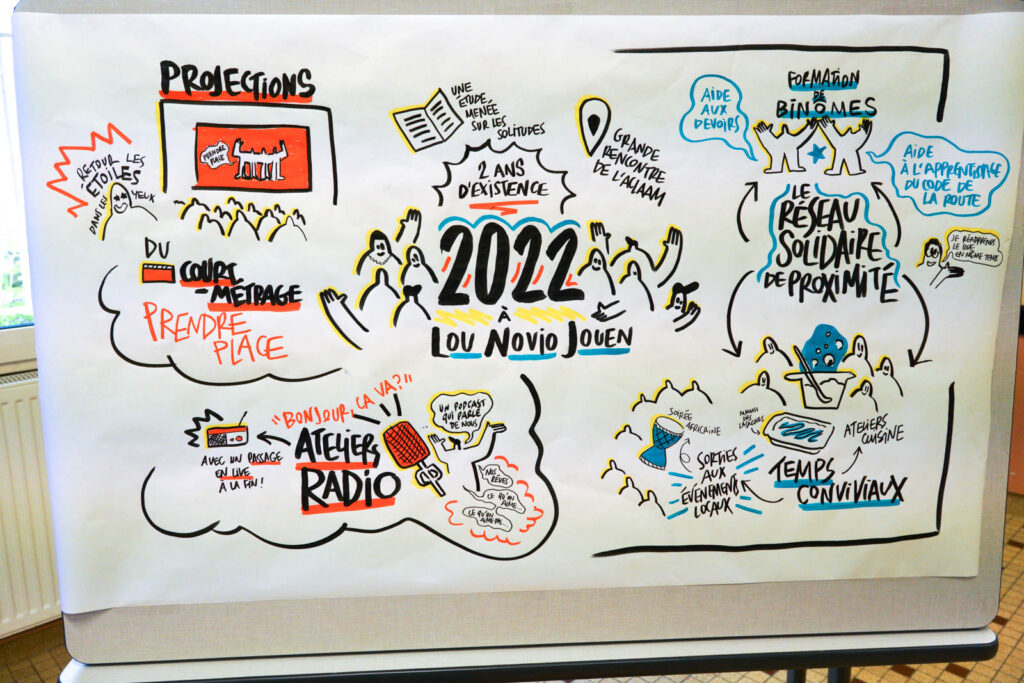 PROJECTIONS
PRENDRE
PLACE
RETOUR LES
ÉTOILES
DANS LES YEUX
DU
COURT
-MÉTRAGE
PRENDRE
PLACE
UNE
ÉTUDE
MENÉE
SUR LES
SOLITUDES
2 ANS
D'EXISTENCE
GRANDE
RENCONTRE
DE L'AGJAAM
2022
À
LOU NOVIO JOUEN
"BONJOUR, ÇA VA?"
ATELIERS
RADIO
AVEC UN PASSAGE
EN LIVE
À LA FIN!
UN PODCAST
QUI PARLE
DE NOUS
NOS
RÊVES
CE QU'ON
AIME
CE QU'ON
AIME PAS
FORMATION
DE
BINÔMES
AIDE
AUX
DEVOIRS
AIDE
À L'APPRENTISSAGE
DU CODE DE
LA ROUTE
LE
RÉSEAU
SOLIDAIRE
DE PROXIMITÉ
JE RÉAPPRENDS
LE CODE
EN MÊME TEMPS
SOIRÉE
AFRICAINE
SORTIES
AUX
ÉVÉNEMENTS
LOCAUX
ATELIERS
CUISINE
TEMPS
CONVIVIAUX